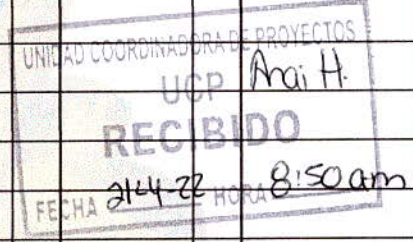 UNIDAD COORDINADORA DE PROYECTOS
UCP Anai H.
RECIBIDO
FECHA 21-4-22 HORA 8:50 am